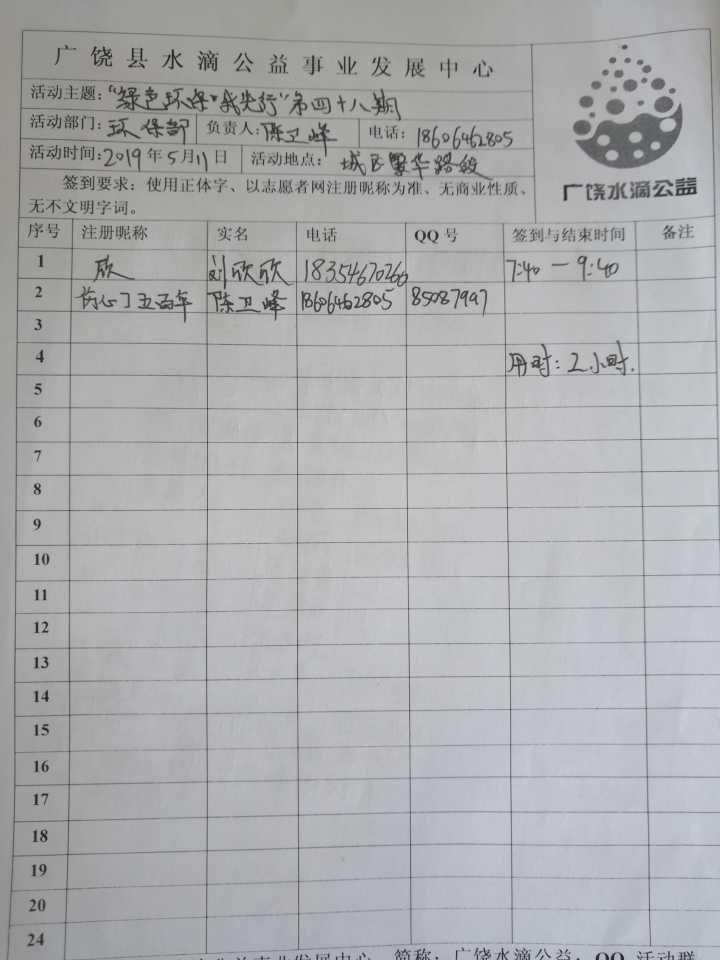 广饶县水滴公益事业发展中心
活动主题:“绿色环保·我先行”第四十八期
活动部门:环保部 负责人:陈卫峰 电话:18606462805
活动时间:2019年5月11日 活动地点: 城区繁华路段
签到要求:使用正体字、以志愿者网注册昵称为准、无商业性质、
无不文明字词。
广饶水滴公益
序号 注册昵称 实名 电话 QQ号 签到与结束时间 备注
1 欣 刘欣欣 18354670266 7:40 — 9:40
2 伤心了五百年 陈卫峰 18606462805 85087997
3
4 用时:2小时.
5
6
7
8
9
10
11
12
13
14
15
16
17
18
19
20
24
公益事业发展中心 简称:广饶水滴公益:QQ 活动群